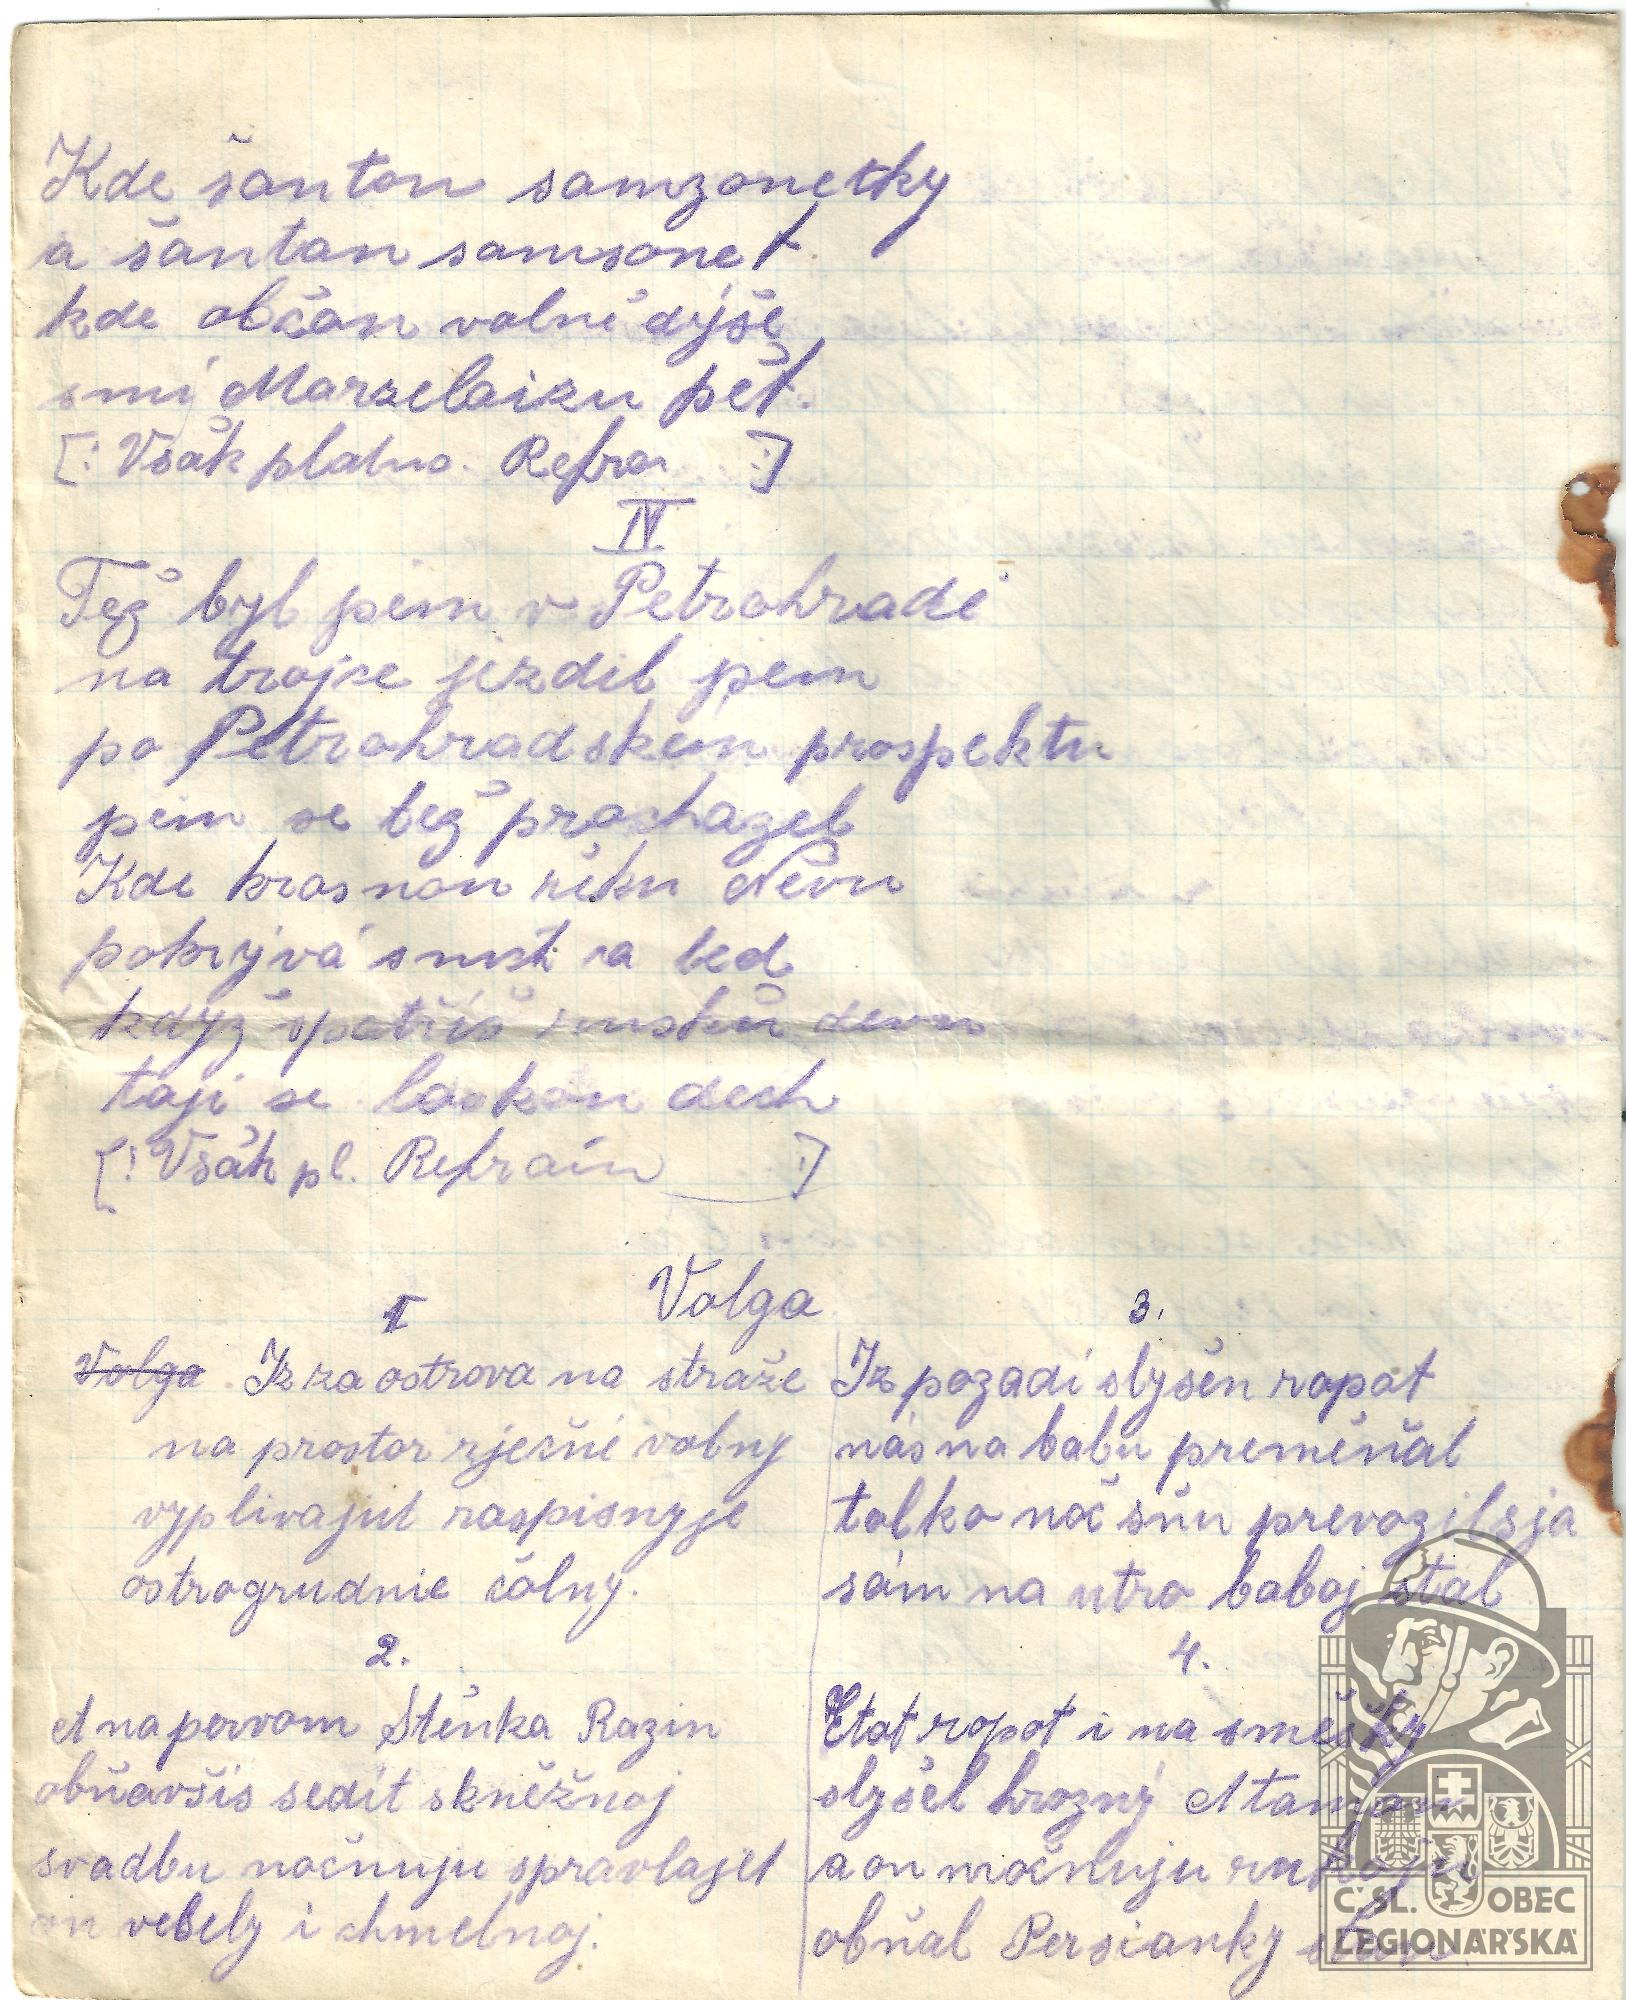 Kde šanton samzonetky
a šantan samsonet
kde občan volně dýše
smí Marzelaizu pět.
[: Však platno. Refra :]
IV
Též byl jsem v Petrohradě
na trojce jezdil jsem
po Petrohradském prospektu
jsem se též procházel
Kde krasnou řeku Nevu
pokrývá sních a led
když spatříš ruskou devu
tají se laskou dech
[: Však pl. Refrain :]
Volga
I
Volga. Iz za ostrova na straže
na prostor rječné volny
vyplivajut raspisnyje
ostrogrudnie čolny.
2.
A na pervom Stěnka Razin
obňavšis sedit skněžnoj
svadbu nočnuju spravlajet
on vesely i chmelnoj.
3.
Iz pozadi slyšen ropot
nás na babu preměňal
tolko noč sňu prevozilsja
sám na utro baboj stal
4.
Etot ropot i na směšky
slyšel hrozný Ataman
a on močnuju rukoju
obňal Persianky stan
ČSL. OBEC
LEGIONÁŘSKÁ